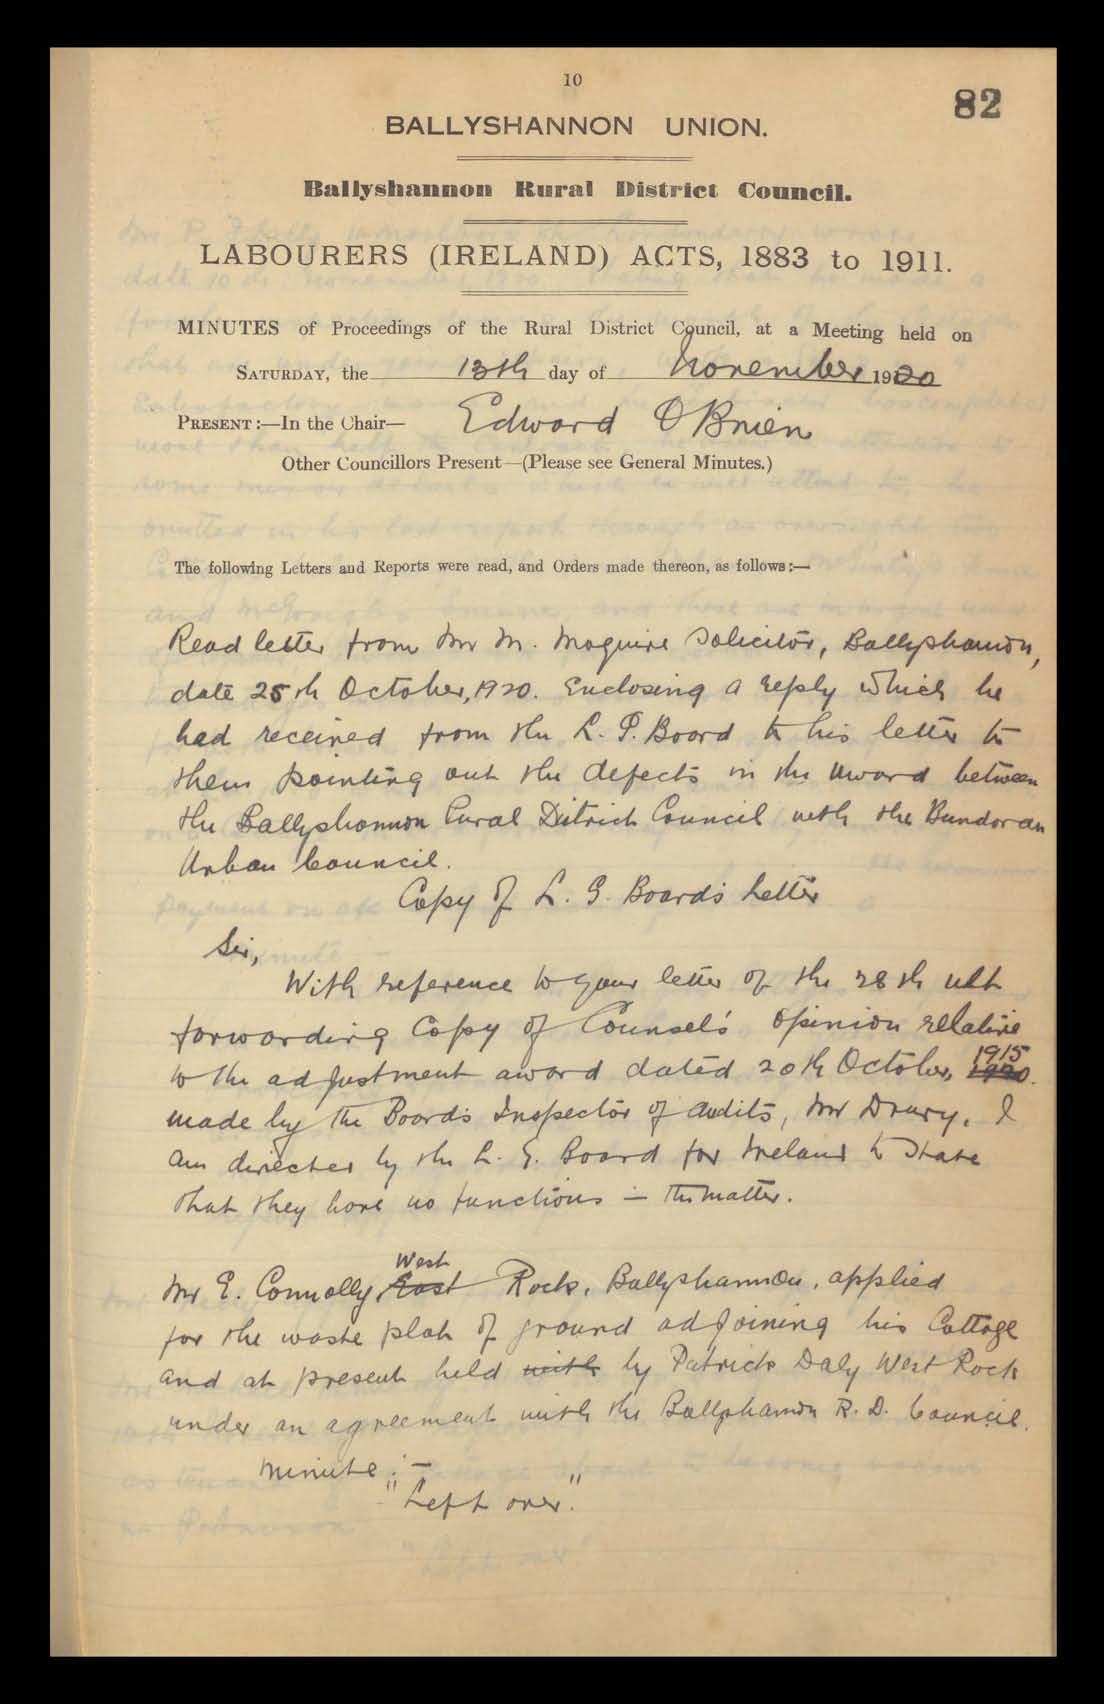 10
82
BALLYSHANNON UNION.
Ballyshannon Rural District Council.
LABOURERS (IRELAND) ACTS, 1883 to 1911.
MINUTES of Proceedings of the Rural District Council, at a Meeting held on
SATURDAY, the 13th day of November 1920
PRESENT:—In the Chair— Edward O'Brien
Other Councillors Present—(Please see General Minutes.)
The following Letters and Reports were read, and Orders made thereon, as follows:—
Read letter from Mr M. Maguire Solicitor, Ballyshannon,
date 25th October, 1920. Enclosing a reply which he
had received from the L. G. Board to his letter to
them pointing out the defects in the Award between
the Ballyshannon Rural District Council with the Bundoran
Urban Council.
Copy of L. G. Boards Letter
Sir,
With reference to your letter of the 28th ult
forwarding Copy of Counsel's opinion relative
to the adjustment award dated 20th October, 1920. 1915
made by the Boards Inspector of Audits, Mr Drury, I
am directed by the L. G. Board for Ireland to State
that they have no functions in the matter.
Mr E. Connolly, East West Rock, Ballyshannon, applied
for the waste plot of ground adjoining his Cottage
and at present held with by Patrick Daly West Rock
under an agreement with the Ballyshannon R. D. Council.
Minute :-
"Left over".